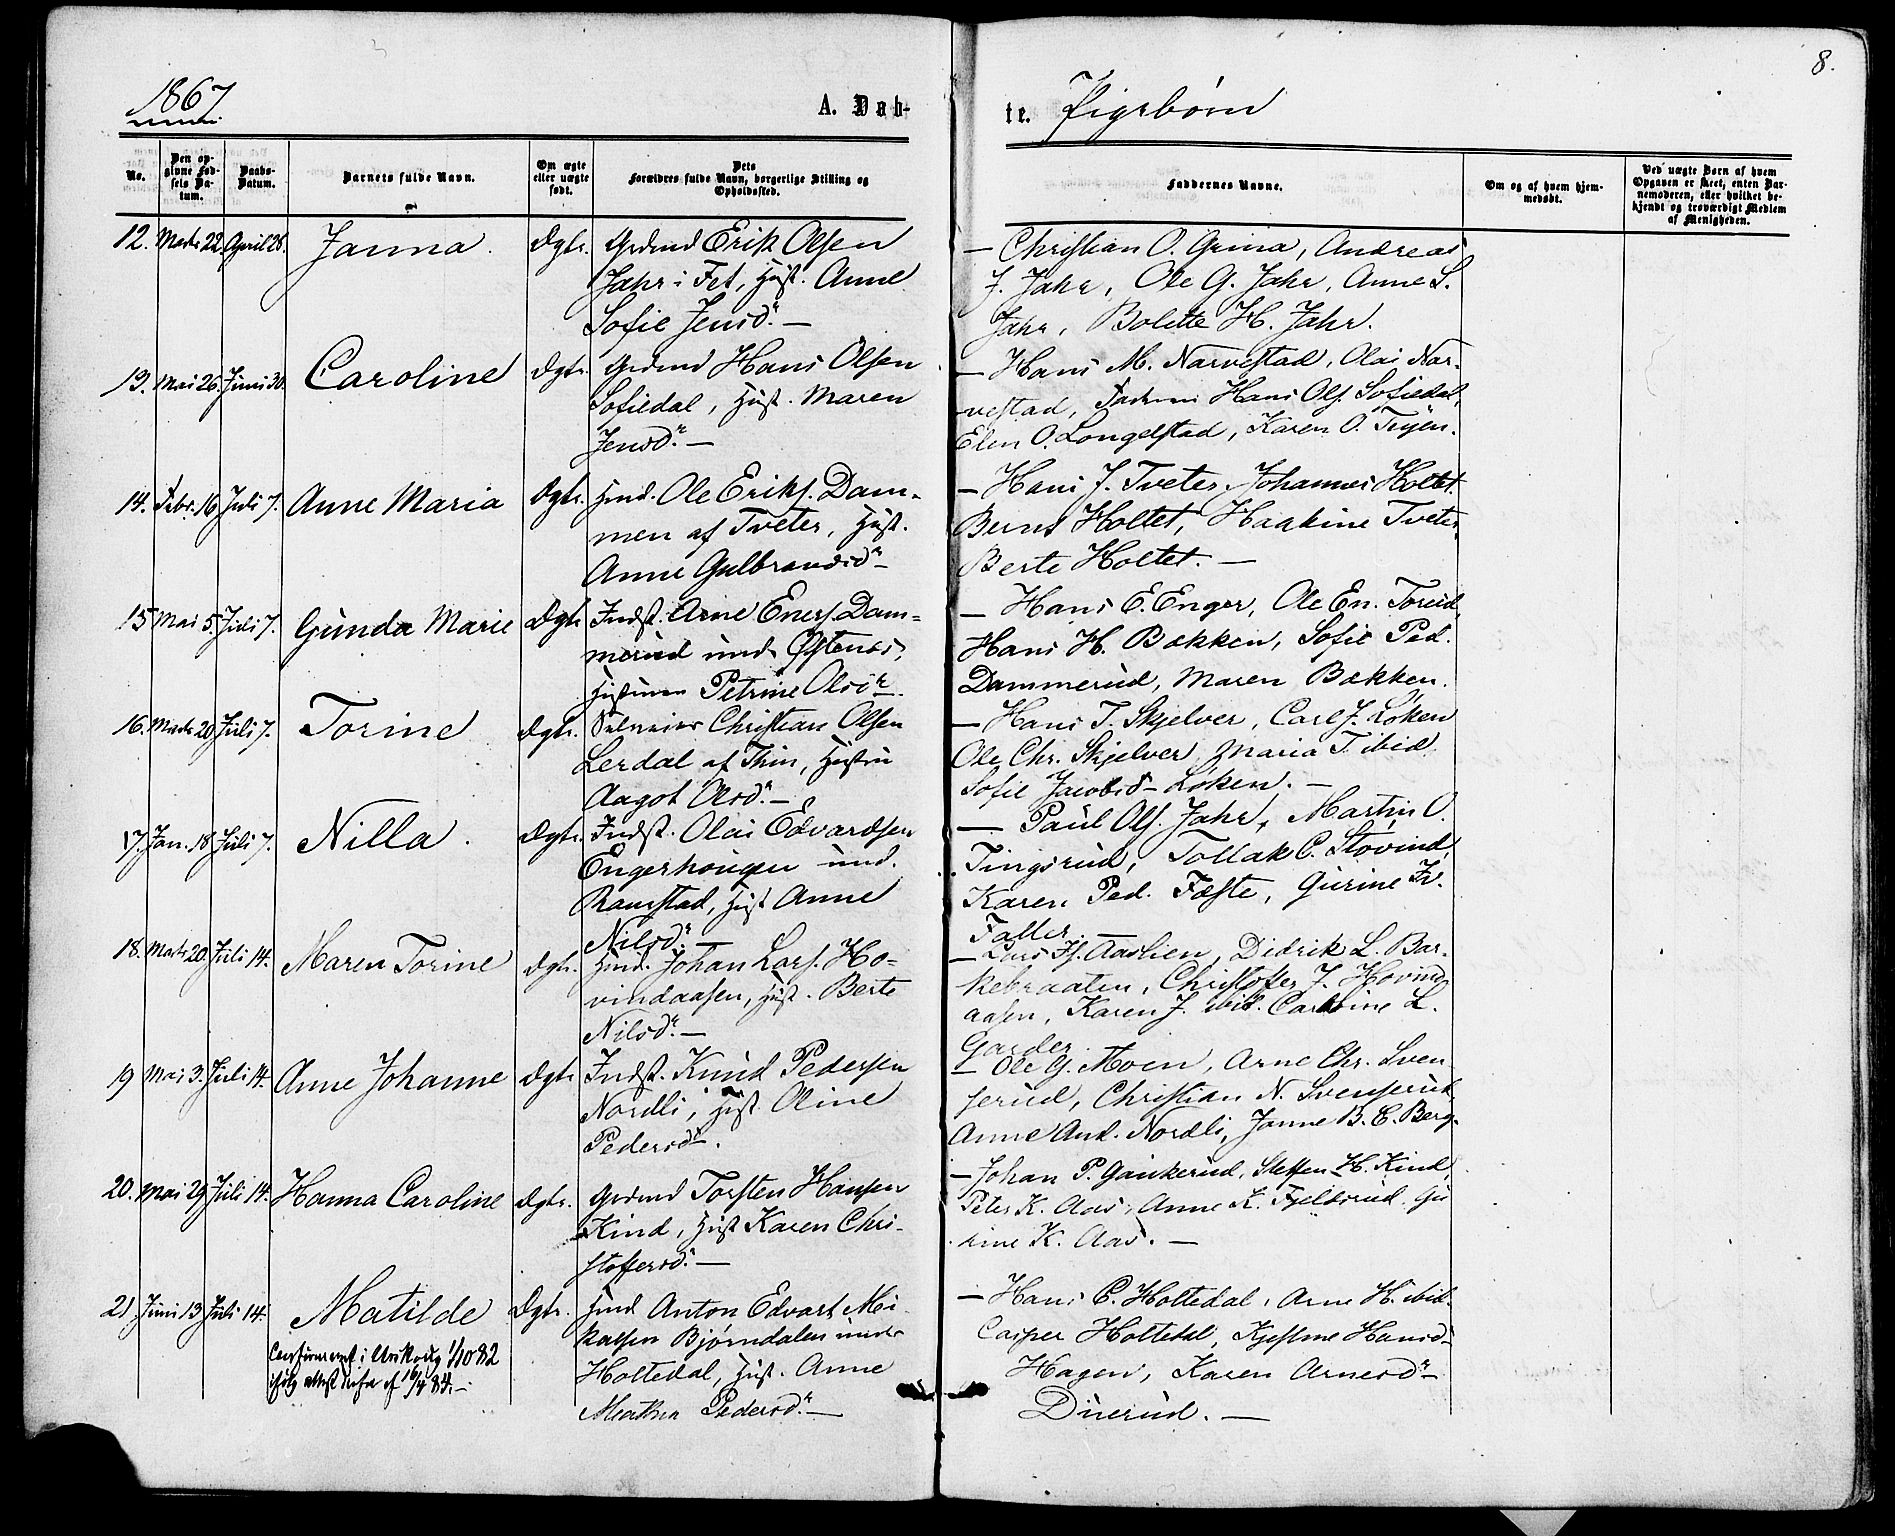 8.
1867
A. Døb-
te. Pigebørn
No.
Den op-
givne Fød-
sels Da-
tum.
Daabs-
Datum.
Barnets fulde Navn.
Om ægte
eller uægte
født.
Dets
Forældres fulde Navn, borgerlige Stilling og
Opholdssted.
Faddernes Navne.
Om og af hvem hjem-
medøbt.
Ved uægte Børn af hvem
Opgaven er skeet, enten Bar-
nemoderen, eller hvilket be-
kjendt og troværdigt Medlem
af Menigheden.
12. Marts 22. April 28. Janna. Dgtr. Grdmd Erik Olsen
Jahr i Fet, Hust. Anne
Sofie Jensdr. —
— Christian O. Grina, Andreas
J. Jahr, Ole G. Jahr, Anne S.
Jahr, Bolette H. Jahr.
13. Mai 26. Juni 30. Caroline Dgtr. Grdmd Hans Olsen
Sofiedal, Hust. Maren
Jensdr. —
— Hans M. Narvestad, Olai Nar-
vestad, Faderen Hans Ols. Sofiedal,
Elen O. Longelstad, Karen O. Tøien.
14. Febr. 16 Juli 7. Anne Maria Dgtr. Hmd. Ole Eriks. Dam-
men af Tveter, Hust.
Anne Gulbrandsdr —
— Hans J. Tveter, Johannes Holtet
Bernt Holtet, Haakine Tveter,
Berte Holtet. —
15 Mai 5. Juli 7. Gunda Marie Dgtr Indst. Arne Eners. Dam-
merud und. Østenes,
Hustruen Petrine Olsdr.
— Hans E. Enger, Ole En. Toreid,
Hans H. Bakken, Sofie Ped.
Dammerud, Maren Bakken.
16. Marts 20 Juli 7. Torine Dgtr. Selveier Christian Olsen
Lerdal af Thin, Hustru
Aagot Olsdr. —
— Hans T. Skjelver, Carl J. Løken
Ole Chr. Skjelver, Maria T. ibid.
Sofie Jacobsd — Løken. —
17. Jan. 18 Juli 7. Nilla. Dgtr. Indst. Olai Edvardsen
Engerhougen und.
Ramstad, Hust Anne
Nilsdr. —
— Paul Ols. Jahr, Martin O.
Tingsrud, Tollak C. Støvind,
Karen Ped. Fæste, Gurine Fr.
Faller. —
18. Marts 20. Juli 14. Maren Torine Dgtr. Hmd. Johan Lars. Ho-
vindaasen, Hust. Berte
Nilsdr. —
— Lars H. Aaslien, Didrik L. Bar-
kebraaten, Christoffer J. Hovind-
aasen, Karen J. ibid. Caroline L.
Garder.
19 Mai 3. Juli 14. Anne Johanne Dgtr Indst. Knud Pedersen
Nordli, Hust Oline
Pedersdr.
— Ole G. Moen, Arne Chr. Sven-
serud, Christian N. Svenserud,
Anne And. Nordli, Janne B. E. Berg.
20. Mai 29 Juli 14. Hanna Caroline Dgtr. Grdmd Torsten Hansen
Kind, Hust Karen Chri-
stoffersd. —
— Johan P. Gaukerud, Steffen H. Kind,
Peter K. Aas, Anne K. Fjeldsrud, Gu-
rine K. Aas. —
21. Juni 13 Juli 14. Matilde Dgtr. Hmd Anton Edvart Mi-
kalsen Bjørndalen under
Holtedal, Hust. Anne
Marthea Pedersdr. —
Confirmeret i Urskoug 1/10 82
ifølg attest derfra af 16/4 84. —
— Hans C. Holtedal, Arne H. ibid.
Casper Holtedal, Kjestine Hansd —
Hagen, Karen Arnesdr —
Duerud. —